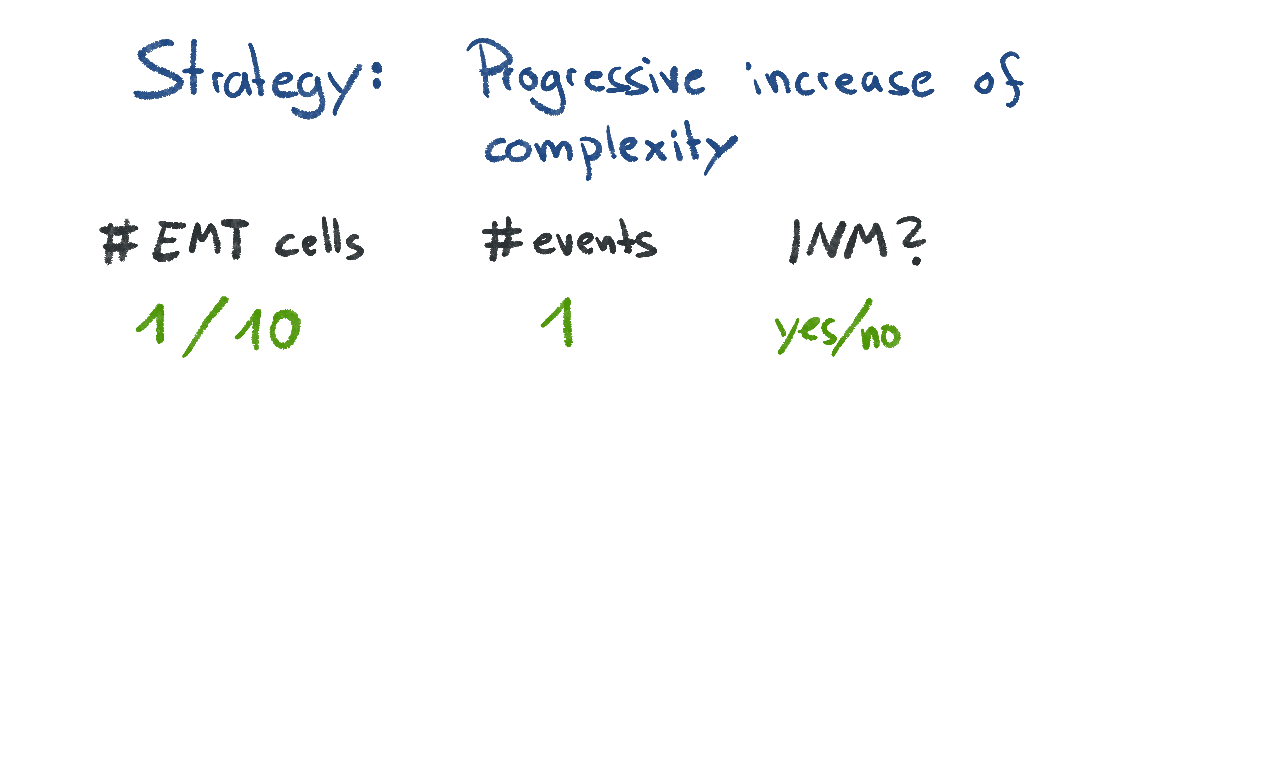 Strategy: Progressive increase of
complexity
# EMT cells # events INM?
1/10 1 yes/no